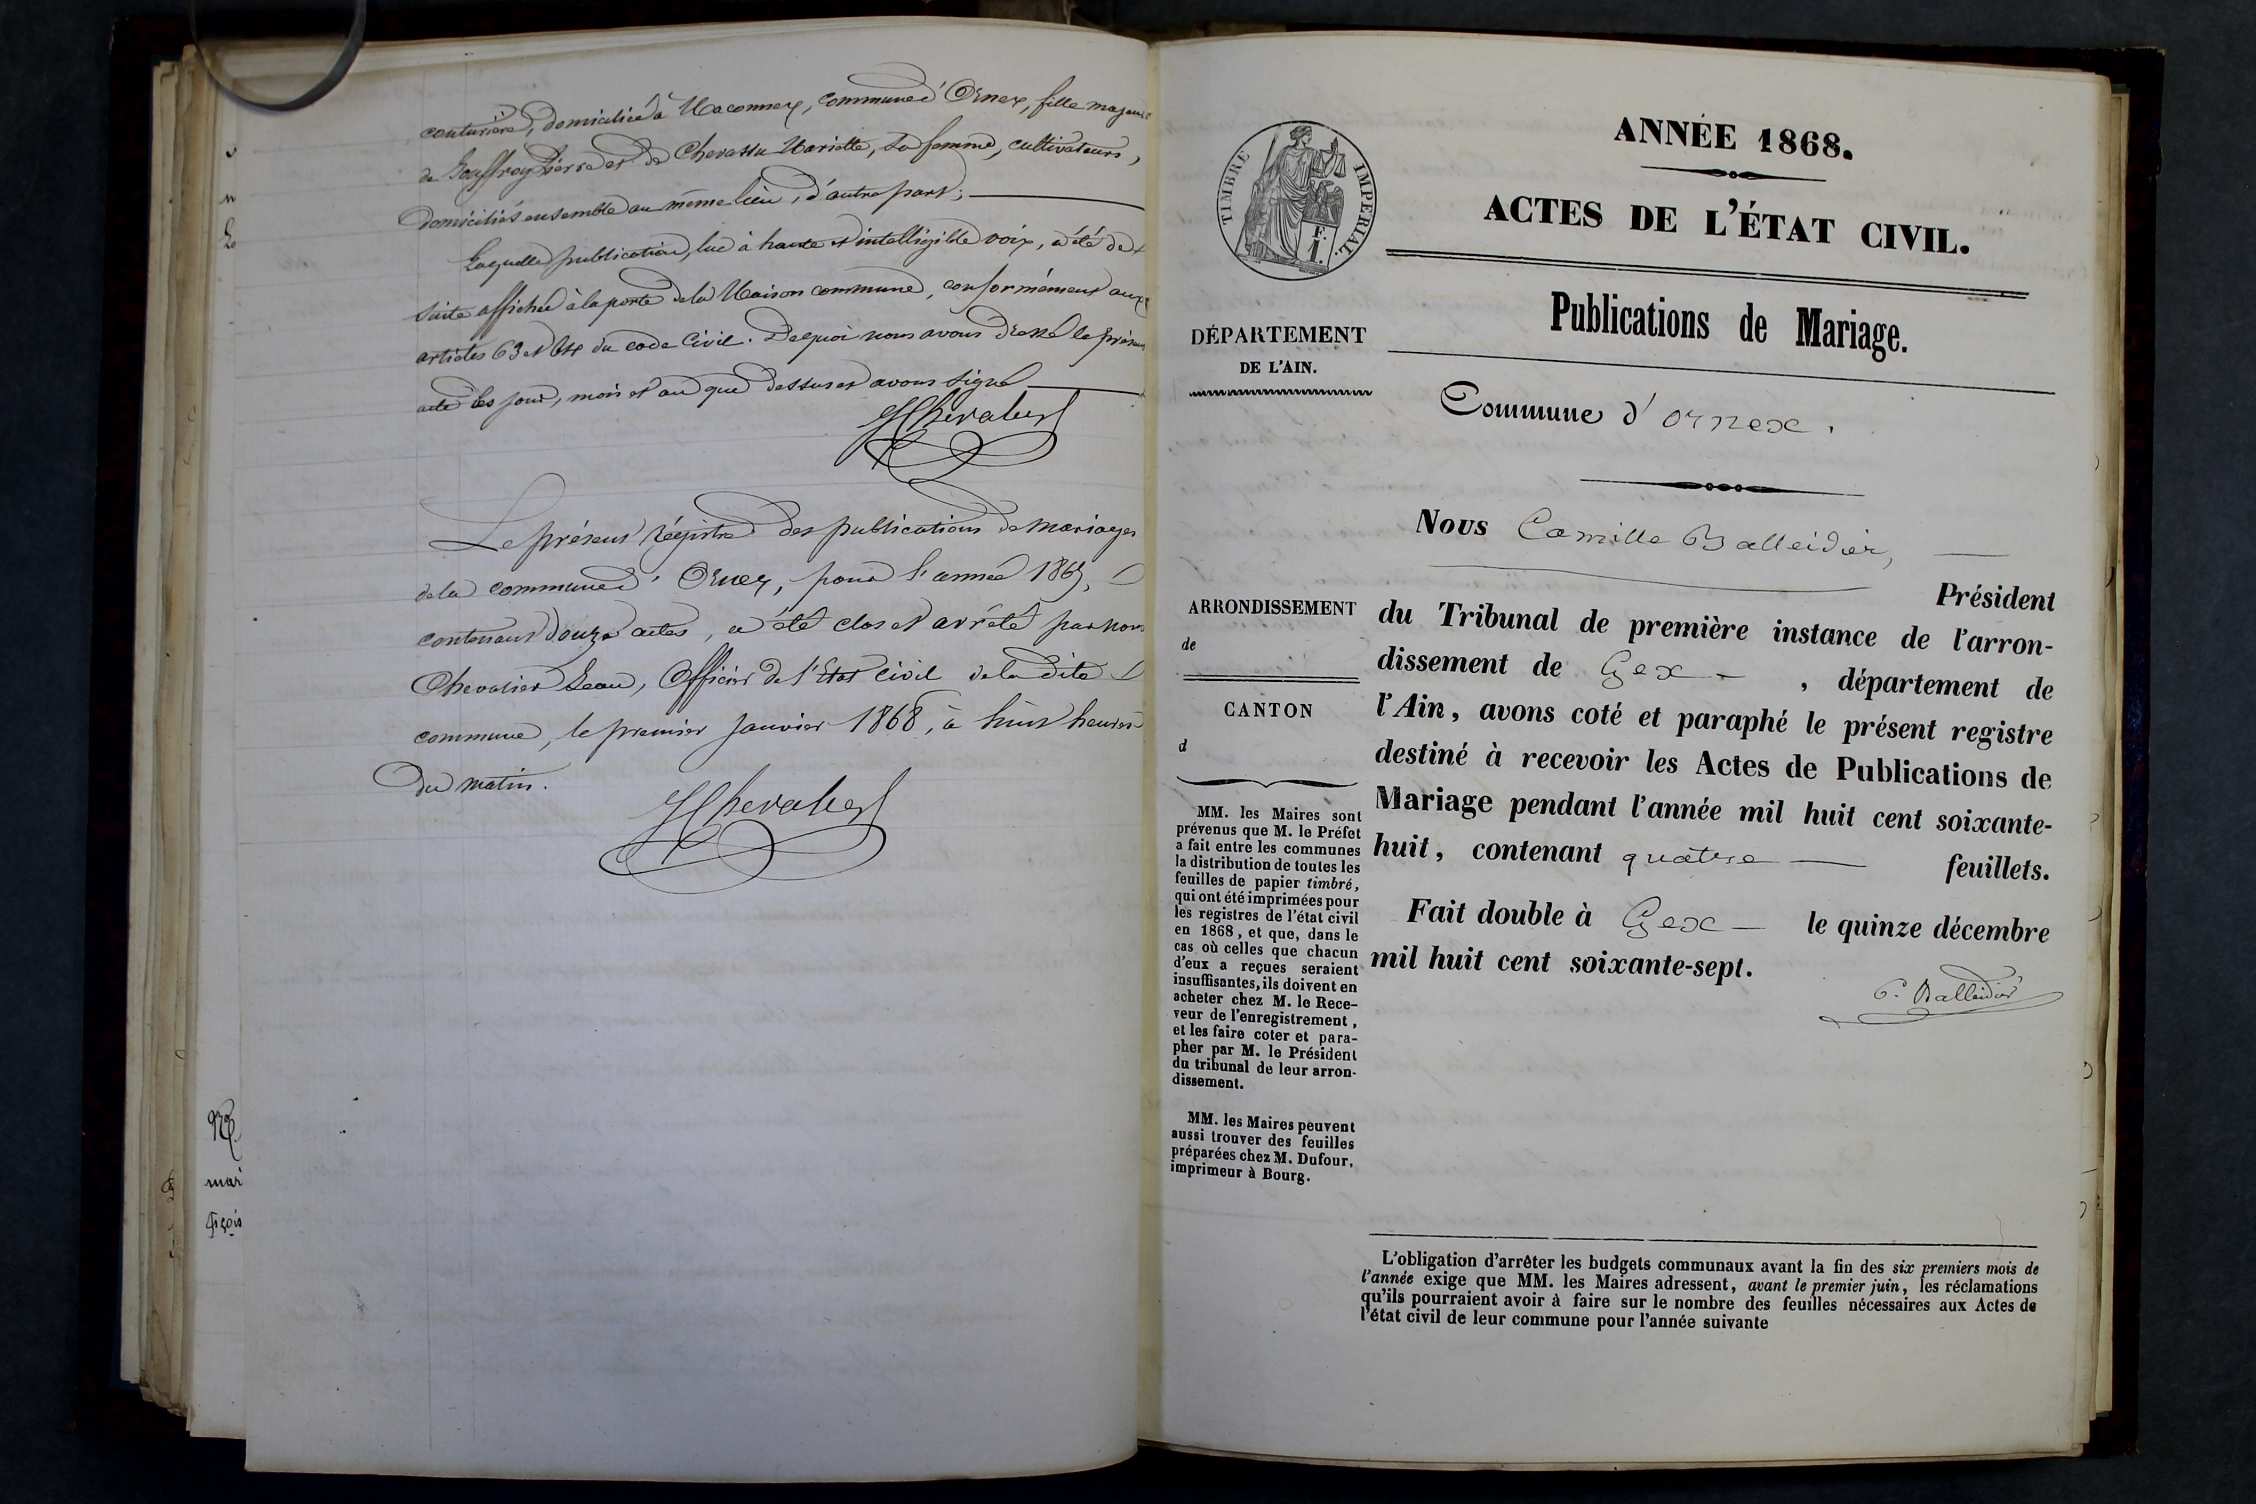 couturière, domiciliée à Maconnex, commune d'Ornex, fille majeure
de Jouffroy Pierre et de Chevassu Mariette, sa femme, cultivateurs,
domiciliés ensemble au même lieu, d'autre part;
Laquelle publication, lue à haute et intelligible voix, a été de
suite affichée à la porte de la Maison commune, conformément aux
articles 63 et 64 du code Civil. De quoi nous avons dressé le présent
acte les jour, mois et an que dessus et avons signé
JChevalier
Le présent Régistre des publications de mariages
de la commune d'Ornex, pour l'année 1867,
contenant Douze actes, a été clos et arrêté par nous
Chevalier Jean, Officier de l'Etat Civil de la dite
commune, le premier Janvier 1868, à huit heures
du matin.
JChevalier
mari
TIMBRE IMPERIAL
F.
1.
DÉPARTEMENT
DE L'AIN.
ARRONDISSEMENT
de
CANTON
d
MM. les Maires sont
prévenus que M. le Préfet
a fait entre les communes
la distribution de toutes les
feuilles de papier timbré,
qui ont été imprimées pour
les registres de l'état civil
en 1868, et que, dans le
cas où celles que chacun
d'eux a reçues seraient
insuffisantes, ils doivent en
acheter chez M. le Rece-
veur de l'enregistrement,
et les faire coter et para-
pher par M. le Président
du tribunal de leur arron-
dissement.
MM. les Maires peuvent
aussi trouver des feuilles
préparées chez M. Dufour,
imprimeur à Bourg.
ANNÉE 1868.
ACTES DE L'ÉTAT CIVIL.
Publications de Mariage.
Commune d'ornex.
Nous Camille Balleidier,
Président
du Tribunal de première instance de l'arron-
dissement de Gex, département de
l'Ain, avons coté et paraphé le présent registre
destiné à recevoir les Actes de Publications de
Mariage pendant l'année mil huit cent soixante-
huit, contenant quatre feuillets.
Fait double à Gex le quinze décembre
mil huit cent soixante-sept.
C. Balleidier
L'obligation d'arrêter les budgets communaux avant la fin des six premiers mois de
l'année exige que MM. les Maires adressent, avant le premier juin, les réclamations
qu'ils pourraient avoir à faire sur le nombre des feuilles nécessaires aux Actes de
l'état civil de leur commune pour l'année suivante